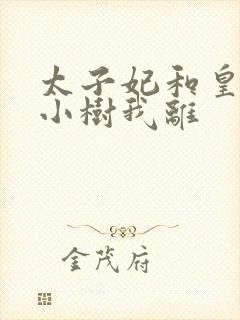 太子妃和皇
小樹我離
金茂府